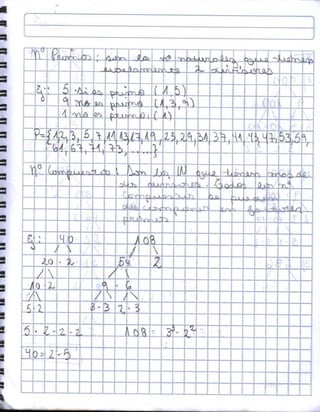 nº Primos : son los nº naturales que tienen
solamente 2 divisores
Ej: 5 si es primo (1,5)
9 no es primo (1,3,9)
1 no es primo (1)
P={2,3,5,7,11,13,17,19,23,29,31,37,41,43,47,53,59,
61,67,71,73,.....}
nº Compuestos : Son los IN que tienen mas de
dos divisores. Todos los nº
compuestos se pueden
descomponer en factores
primos
Ej: 40 108
20 · 2 54 2
10 · 2 9 · 6
5 2 3 · 3 2 · 3
5 · 2 · 2 · 2 108 = 3³ · 2² =
40 = 2 · 5